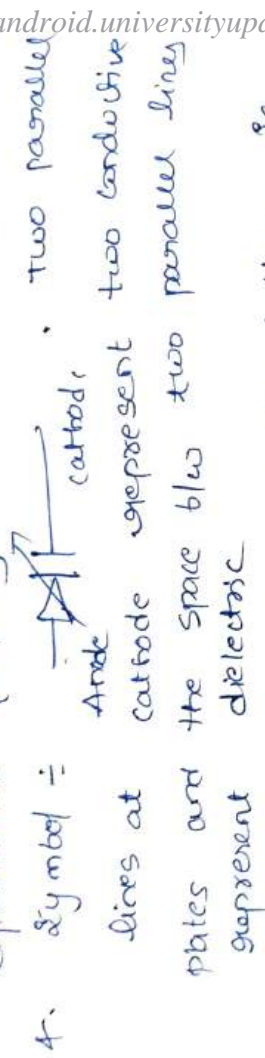 android.universityupd
4. Symbol ÷ Anode cathode . two parallel
lines at cathode represent two conductive
plates and the space b/w two parallel lines
represent dielectric